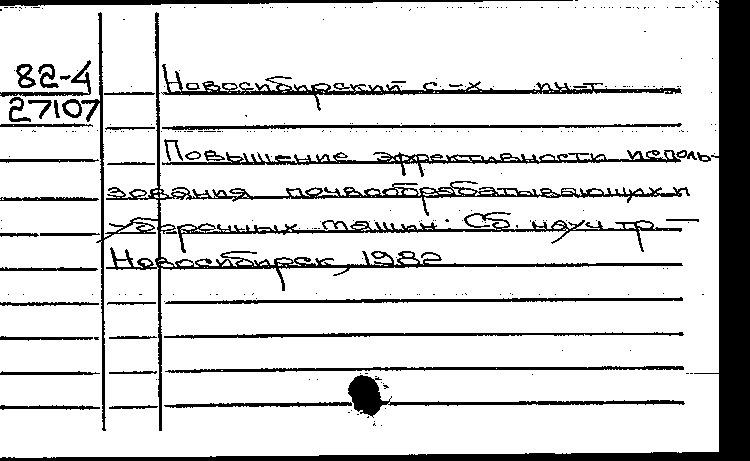 82-4
27107
Новосибирский с.-х. ин-т
Повышение эффективности исполь-
зования почвообрабатывающих и
уборочных машин: Сб. науч. тр. —
Новосибирск, 1982